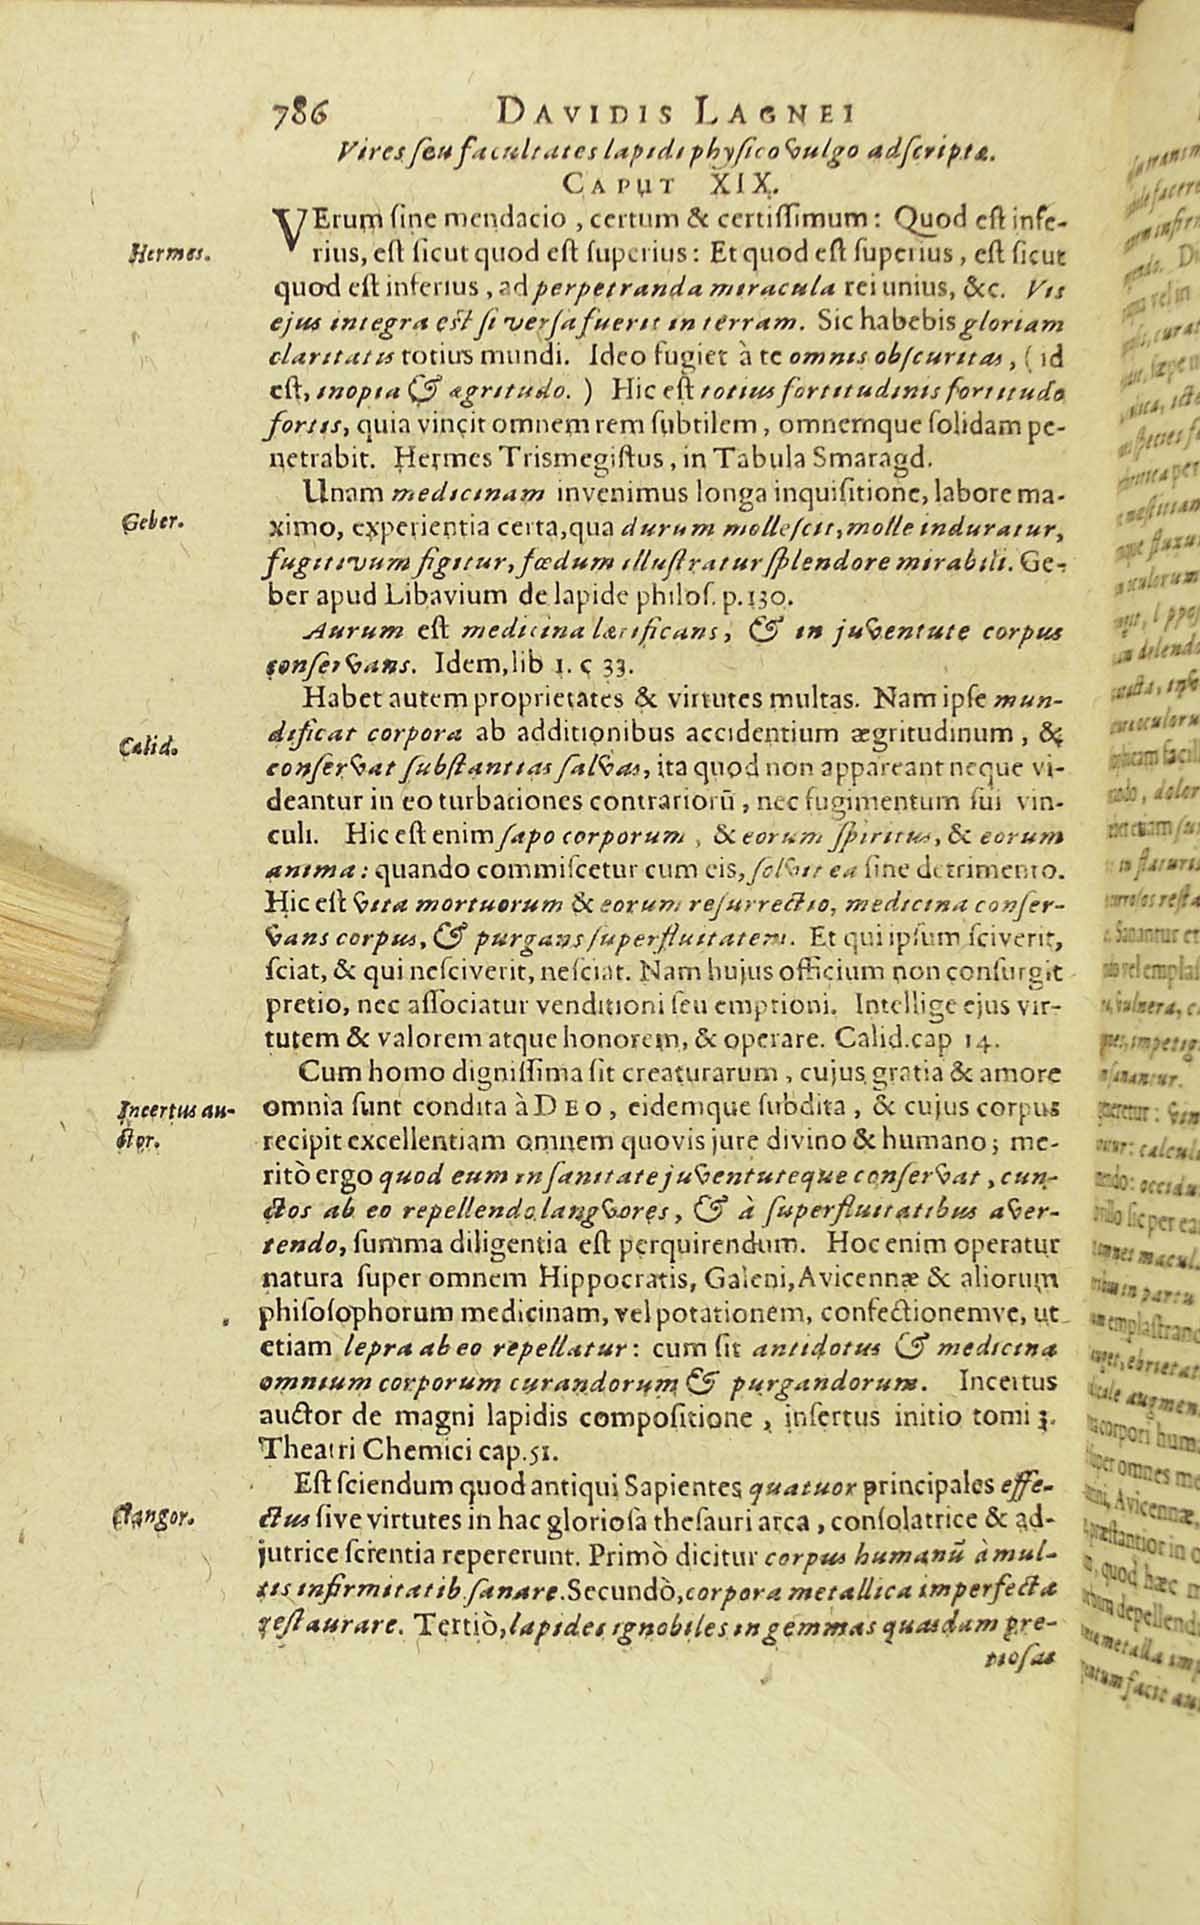 786 DAVIDIS LAGNEI
Vires seu facultates lapidi physico vulgo adscriptæ.
CAPUT XIX.
Hermes.
VErum sine mendacio, certum & certissimum: Quod est infe-
rius, est sicut quod est superius: Et quod est superius, est sicut
quod est inferius, ad perpetranda miracula rei unius, &c. Vis
ejus integra est si versa fuerit in terram. Sic habebis gloriam
claritatis totius mundi. Ideo fugiet à te omnis obscuritas, (id
est, inopia & ægritudo.) Hic est totius fortitudinis fortitudo
fortis, quia vincit omnem rem subtilem, omnemque solidam pe-
netrabit. Hermes Trismegistus, in Tabula Smaragd.
Geber.
Unam medicinam invenimus longa inquisitione, labore ma-
ximo, experientia certa, qua durum mollescit, molle induratur,
fugitivum figitur, fœdum illustratur splendore mirabili. Ge-
ber apud Libavium de lapide philos. p. 130.
Aurum est medicina lætificans, & in juventute corpus
conservans. Idem, lib 1. c 33.
Calid.
Habet autem proprietates & virtutes multas. Nam ipse mun-
dificat corpora ab additionibus accidentium ægritudinum, &
conservat substantias salvas, ita quod non appareant neque vi-
deantur in eo turbationes contrariorū, nec fugimentum sui vin-
culi. Hic est enim sapo corporum, & eorum spiritus, & eorum
anima: quando commiscetur cum eis, solvit ea sine detrimento.
Hic est vita mortuorum & eorum resurrectio, medicina conser-
vans corpus, & purgans superfluitatem. Et qui ipsum sciverit,
sciat, & qui nesciverit, nesciat. Nam hujus officium non consurgit
pretio, nec associatur venditioni seu emptioni. Intellige ejus vir-
tutem & valorem atque honorem, & operare. Calid. cap 14.
Incertus au-
ctor.
Cum homo dignissima sit creaturarum, cujus gratia & amore
omnia sunt condita à DEO, eidemque subdita, & cujus corpus
recipit excellentiam omnem quovis jure divino & humano; me-
ritò ergo quod eum in sanitate juventuteque conservat, cun-
ctos ab eo repellendo langvores, & à superfluitatibus aver-
tendo, summa diligentia est perquirendum. Hoc enim operatur
natura super omnem Hippocratis, Galeni, Avicennæ & aliorum
phisosophorum medicinam, vel potationem, confectionemve, ut
etiam lepra ab eo repellatur: cum sit antidotus & medicina
omnium corporum curandorum & purgandorum. Incertus
auctor de magni lapidis compositione, insertus initio tomi 3.
Theatri Chemici cap. 51.
Clangor.
Est sciendum quod antiqui Sapientes quatuor principales effe-
ctus sive virtutes in hac gloriosa thesauri arca, consolatrice & ad-
jutrice scientia repererunt. Primò dicitur corpus humanū à mul-
tis infirmitatib. sanare. Secundò, corpora metallica imperfecta
restaurare. Tertiò, lapides ignobiles in gemmas quasdam pre-
tiosas